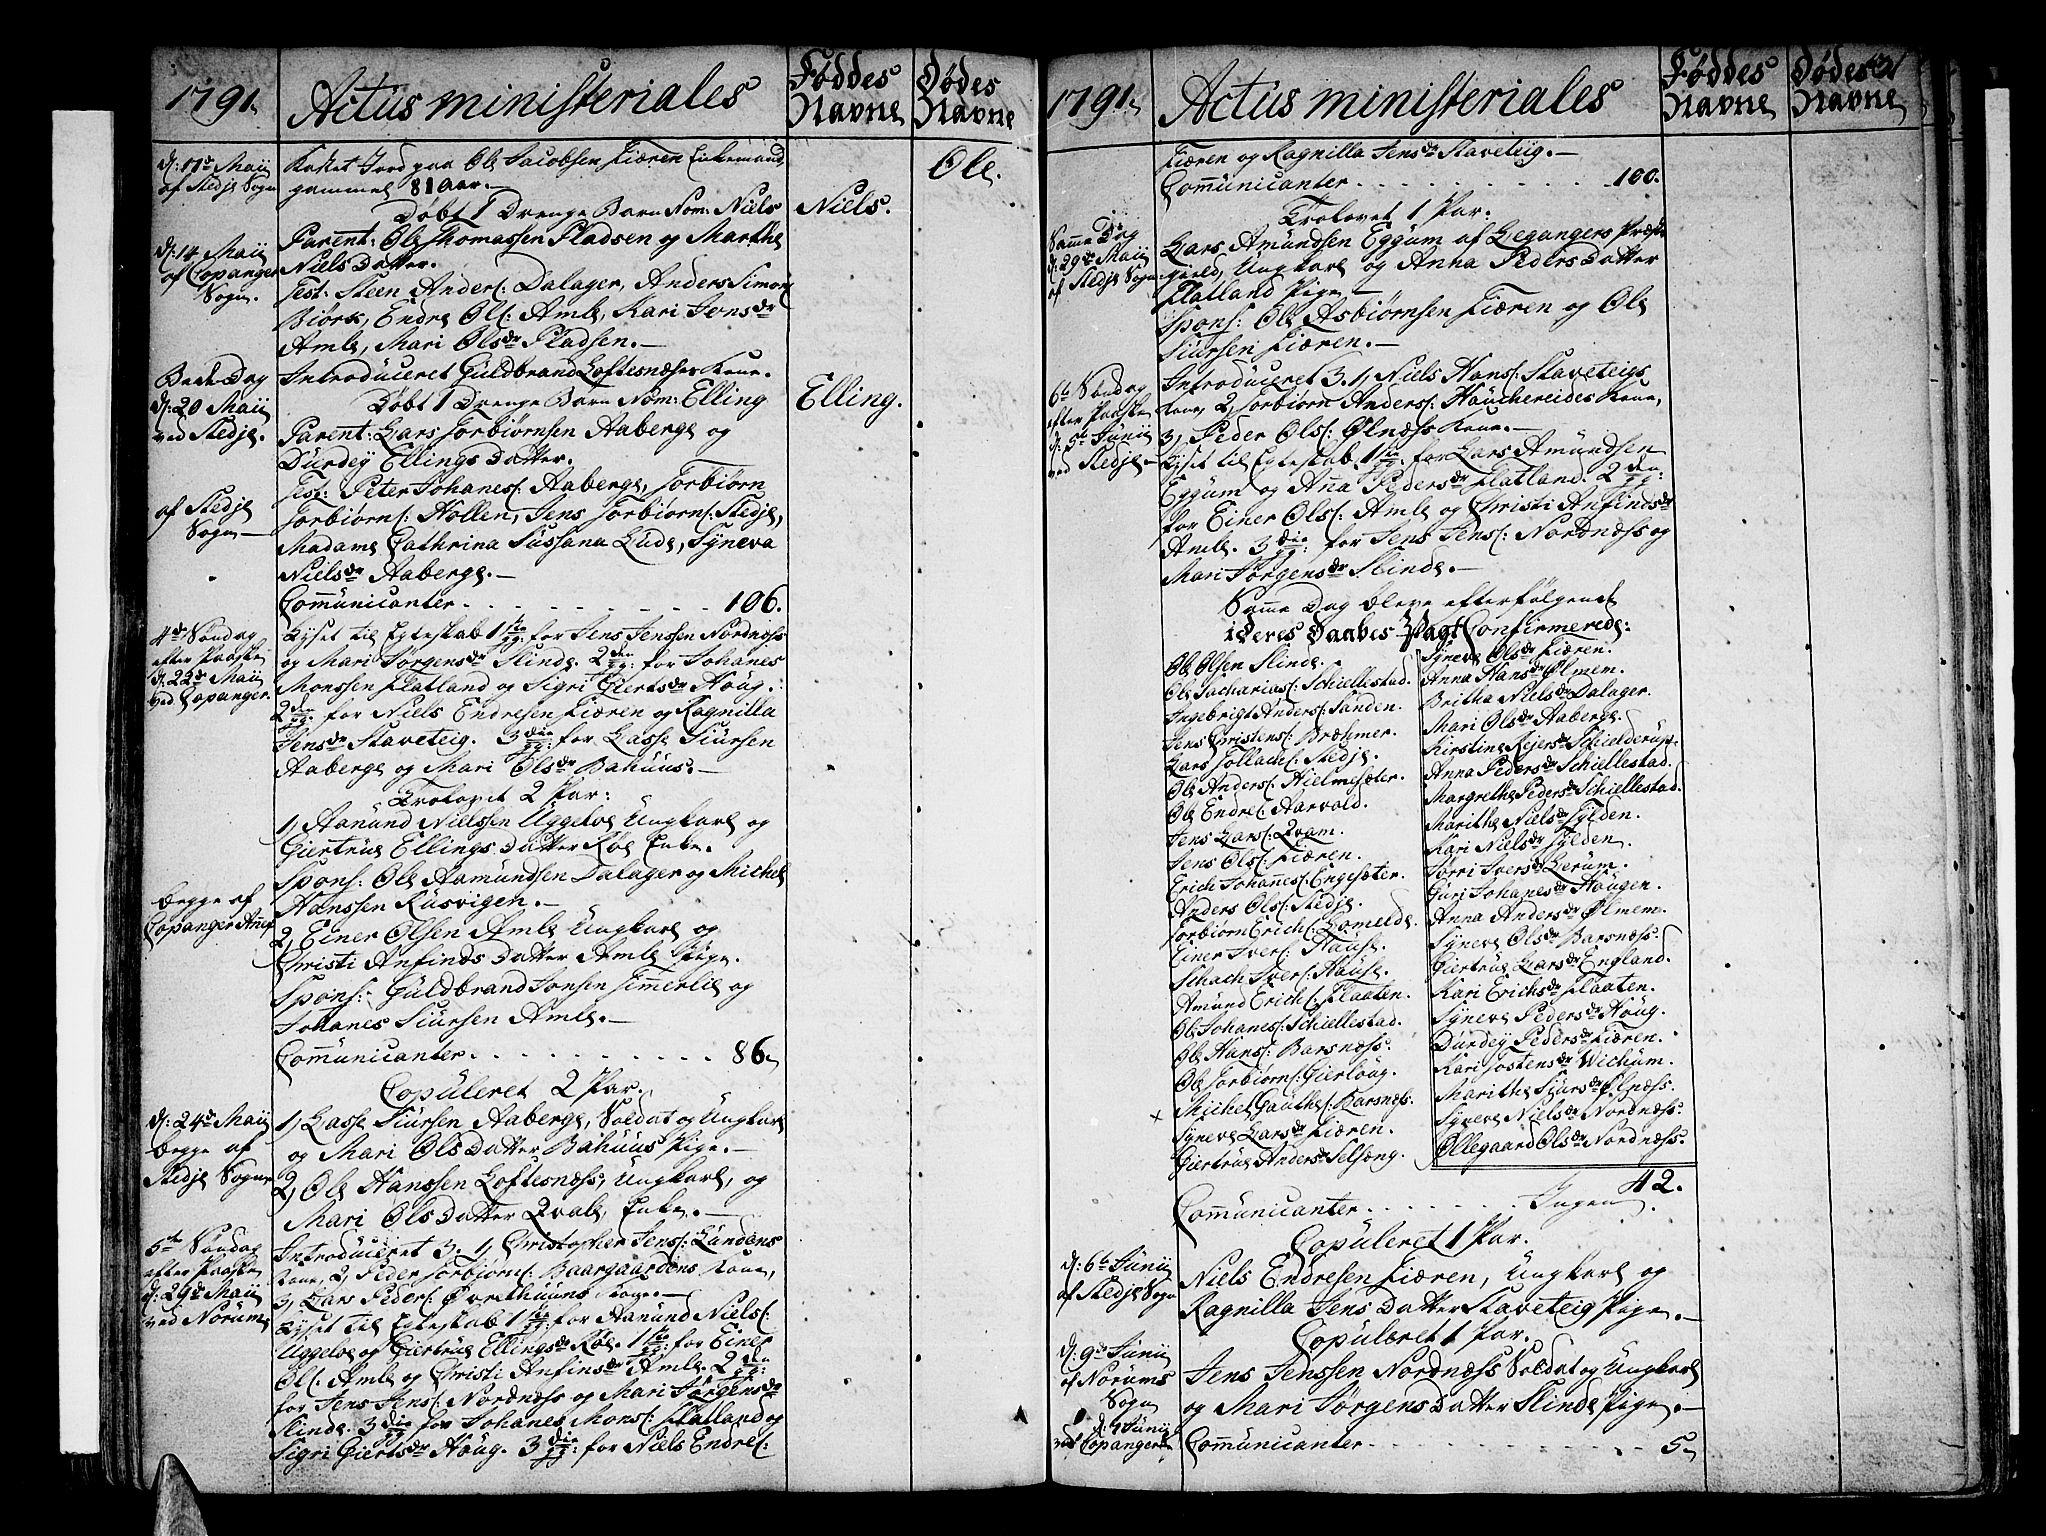 1791.
Actus ministeriales
Føddes Navne
Dødes Navne
d: 17de Maii
af Stedje Sogn
Kastet Jord paa Ole Jacobsen Fiæren Enkemand
gammel 81 Aar.—
Ole.
Døbt 1 Drenge Barn Nom: Niels
Niels.
d: 14 Maii
af Copanger
Sogn.
Parent: Ole Thomassen Pladsen og Marthe
Niels Datter.
Test: Steen Anders: Dalager, Anders Simons:
Biørk, Endre Ols: Amle, Kari Jensdr
Amle, Mari Olsdr Pladsen.—
Bede-Dag
d: 20 Maii
ved Stedje.
Introduceret Guldbrand Loftesnæses Kone.
Døbt 1 Drenge Barn Nom: Elling
Elling.
Parent: Lars Torbiørnsen Aaberge og
Durdey Ellings Datter.
af Stedje
Sogn—
Test: Peter Johanes: Aaberge, Torbiørn
Torbiørns: Hollen, Jens Torbiørns: Stedje,
Madame Cathrina Sussana Lude, Syneva
Nielsdr Aaberge.—
Comunicanter . . . . . . . . . 106.
4de Søndag
efter Paaske
d. 22de Maii
ved Copanger.
Lyset til Egteskab 1ste gg: for Jens Jenssen Nordnæss
og Mari Jørgensdr Slinde. 2den gg: for Johanes
Monssen Flatland og Sigri Giertsdr Houg.
2den gg: for Niels Endresen Fiæren og Ragnilla
Jensdr Staveteig. 3die gg: for Lasse Siursen
Aaberge og Mari Olsdr Bahuus.—
Trolovet 2 Par:
1, Aamund Nielssen Uggelve Ungkarl og
Giertrue Ellings Datter Røe Enke.
Spons: Ole Aamundsen Dalager og Michel
Hanssen Rusvigen.—
begge af
Copanger Anex
2, Einer Olsen Amle Ungkarl og
Christi Anfinds Datter Amle Pige.
Spons: Guldbrand Jonsen Timerlie og
Johanes Siursen Amle.—
Comunicanter . . . . . . . . . 86
Copuleret 2 Par.
d: 24de Maii
begge af
Stedje Sogn
1, Lasse Siursen Aaberge, Soldat og Ungkarl
og Mari Ols Datter Bahuus Pige.—
2, Ole Hanssen Loftesnæss, Ungkarl, og
Mari Ols Datter Qvale, Enke.—
5te Søndag
efter Paaske
d: 29de Maii
ved Norum
Introduceret 3. 1, Christopher Jens: Lundens
Kone, 2, Peder Torbiørns: Baargaardens Kone,
3, Lars Peders: Øvrethuuns Kone.—
Lyset til Egteskab 1ste gg: for Aamund Niels:
Uggelve og Giertrue Ellingsdr Røe. 1ste gg: for Einer
Ols: Amle og Christi Anfinsdr Amle. 2den gg:
for Jens Jens: Nordnæss og Mari Jørgensdr
Slinde. 3die gg for Johanes Mons: Flatland og
Sigri Giertsdr Houg. 3die gg: for Niels Endres:
1791.
Actus ministeriales
Føddes Navne
Dødes Navne
Fiæren og Ragnilla Jensdr Staveteig.—
Comunicanter . . . . . . . . . 100.
Trolovet 1 Par:
Same Dag
d: 29de Maii
af Stedje Sogn
Lars Amundsen Eggum af Legangers Præste
gield, Ungkarl og Anna Peders Datter
Flatland Pige—
Spons: Ole Asbiørnsen Fiæren og Ole
Siursen Fiæren.—
6te Søndag
efter Paaske
d. 5te Junii
ved Stedje—
Introduceret 3. 1, Niels Hans: Staveteigs
Kone, 2, Torbiørn Anders: Hauchereides Kone,
3, Peder Ols: Ølnæss Kone.—
Lyset til Egteskab 1ste gg: for Lars Amundsen
Eggum og Ana Pedersdr Flatland. 2den gg:
for Einer Ols: Amle og Christi Anfindsdr
Amle. 3die gg: for Jens Jens: Nordnæss og
Mari Jørgensdr Slinde.—
Same Dag bleve efterfølgende
i Deres Daabes Pagt Confirmerede:
Ole Olsen Slinde.
Ole Sacharias: Schiellestad.
Ingebrigt Anders: Sanden.
Jens Christens: Bræhmer.
Lars Tollach: Stedje.
Ole Anders: Hielmesæter.
Ole Endres: Aarvold.
Jens Lars: Qvam.
Jens Ols: Fiæren.
Erich Johanes: Engesæter.
Anders Ols: Stedje.
Torbiørn Erich: Lomelde.
Einer Ivers: Hause.
Schach Ivers: Hause.
Amund Erich: Flaaten.
Ole Johanes: Schiellestad.
Ole Hans: Barsnæss.
Ole Torbiørn: Gierloug.
Michel Gauthes: Barsnæss.
Syneve Larsdr Fiæren.
Giertrue Andersdr Selseng.
Syneve Olsdr Fiæren.
Anna Hansdr Ølmem.
Britha Nielsdr Dalager.
Mari Olsdr Aaberge.
Kirstine Rejersdr Schielderup.
Anna Pedersdr Schiellestad.
Margrethe Pedersdr Schiellestad.
Marithe Nielsdr Fylden.
Kari Nielsdr Fylden.
Torri Iversdr Lerum.
Guri Johanesdr Haugen.
Anna Andersdr Ølmem.
Syneve Olsdr Barsnæss.
Giertrue Larsdr England.
Kari Erichsdr Flaaten.
Syneve Pedersdr Houg.
Durdey Pedersdr Fiæren.
Kari Jostensdr Wichum.
Marithe Siursdr Ølnæss.
Syneve Nielsdr Nordnæss.
Øllegaard Olsdr Nordnæss.
42.
Comunicanter . . . . . . . Ingen.
Copuleret 1 Par.
d: 6te Junii
af Stedje Sogn
Niels Endresen Fiæren, Ungkarl og
Ragnilla Jens Datter Staveteig Pige.—
Copuleret 1 Par.
d: 9de Junii
af Norums
Sogn
Jens Jenssen Nordnæss Soldat og Ungkarl
og Mari Jørgens Datter Slinde Pige.—
ved Copanger
Comunicanter . . . . . . . . . 5